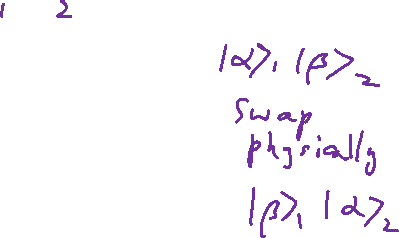 1 2
|α⟩₁ |β⟩₂
swap
physically
|β⟩₁ |α⟩₂